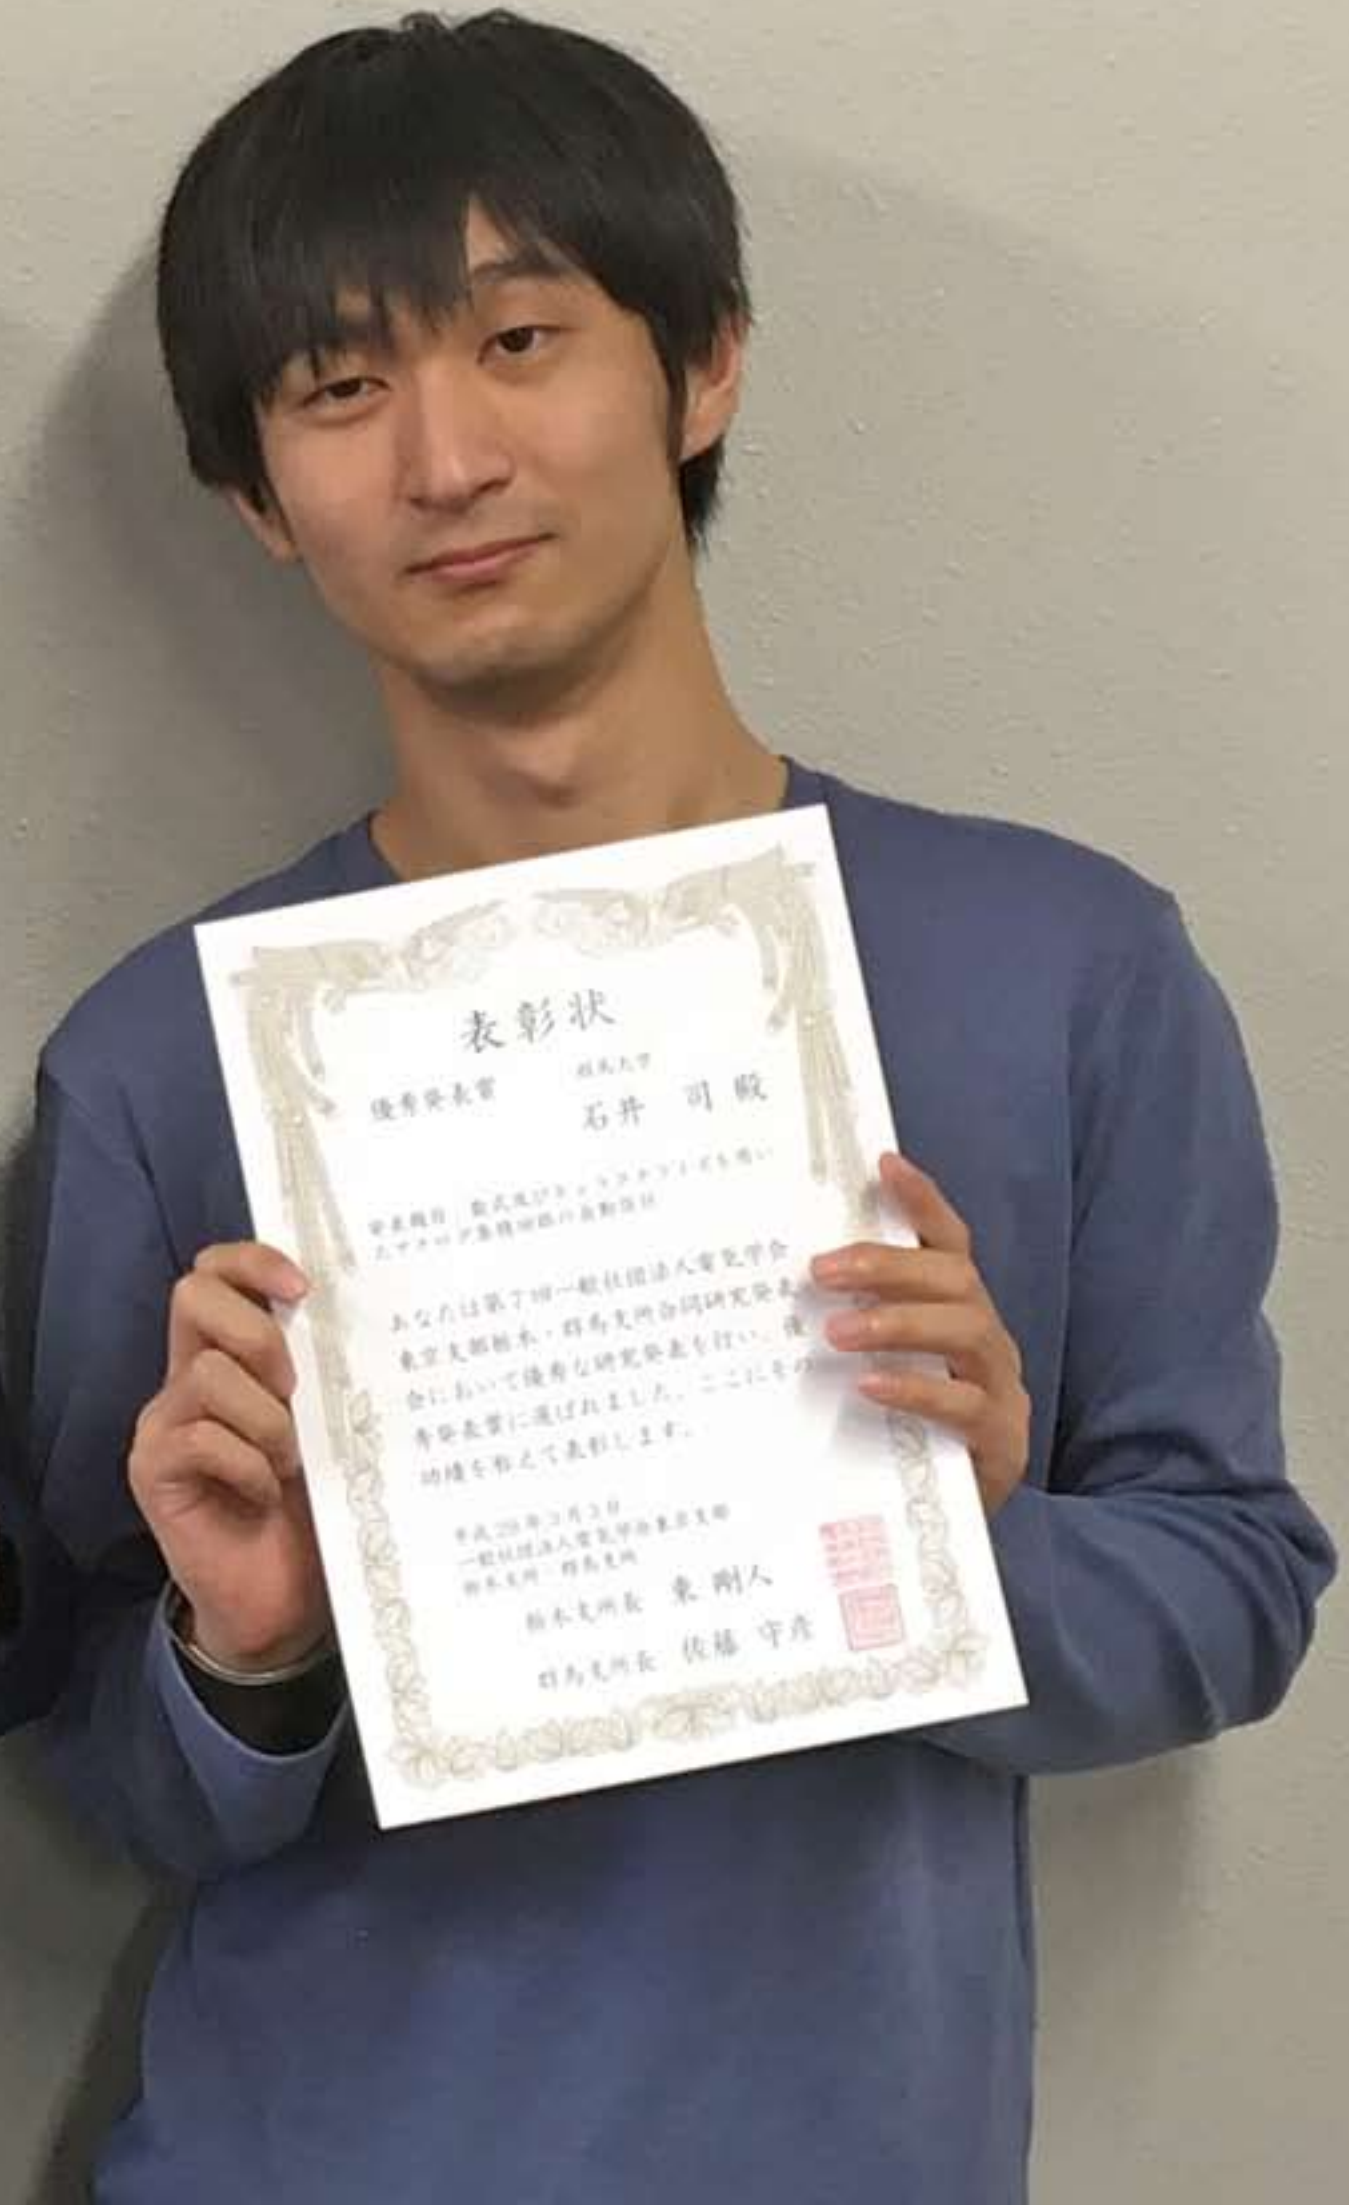 表彰状
優秀発表賞
群馬大学
石井 司 殿
発表題目 数式及び を用い
たアナログ集積回路の自動設計
あなたは第7回一般社団法人電気学会
東京支部栃木・群馬支所合同研究発表
会において優秀な研究発表を行い、優
秀発表賞に選ばれました。ここにその
功績を称えて表彰します。
平成29年3月3日
一般社団法人電気学会東京支部
栃木支所 群馬支所
栃木支所長 東 剛人
群馬支所長 佐藤 守彦